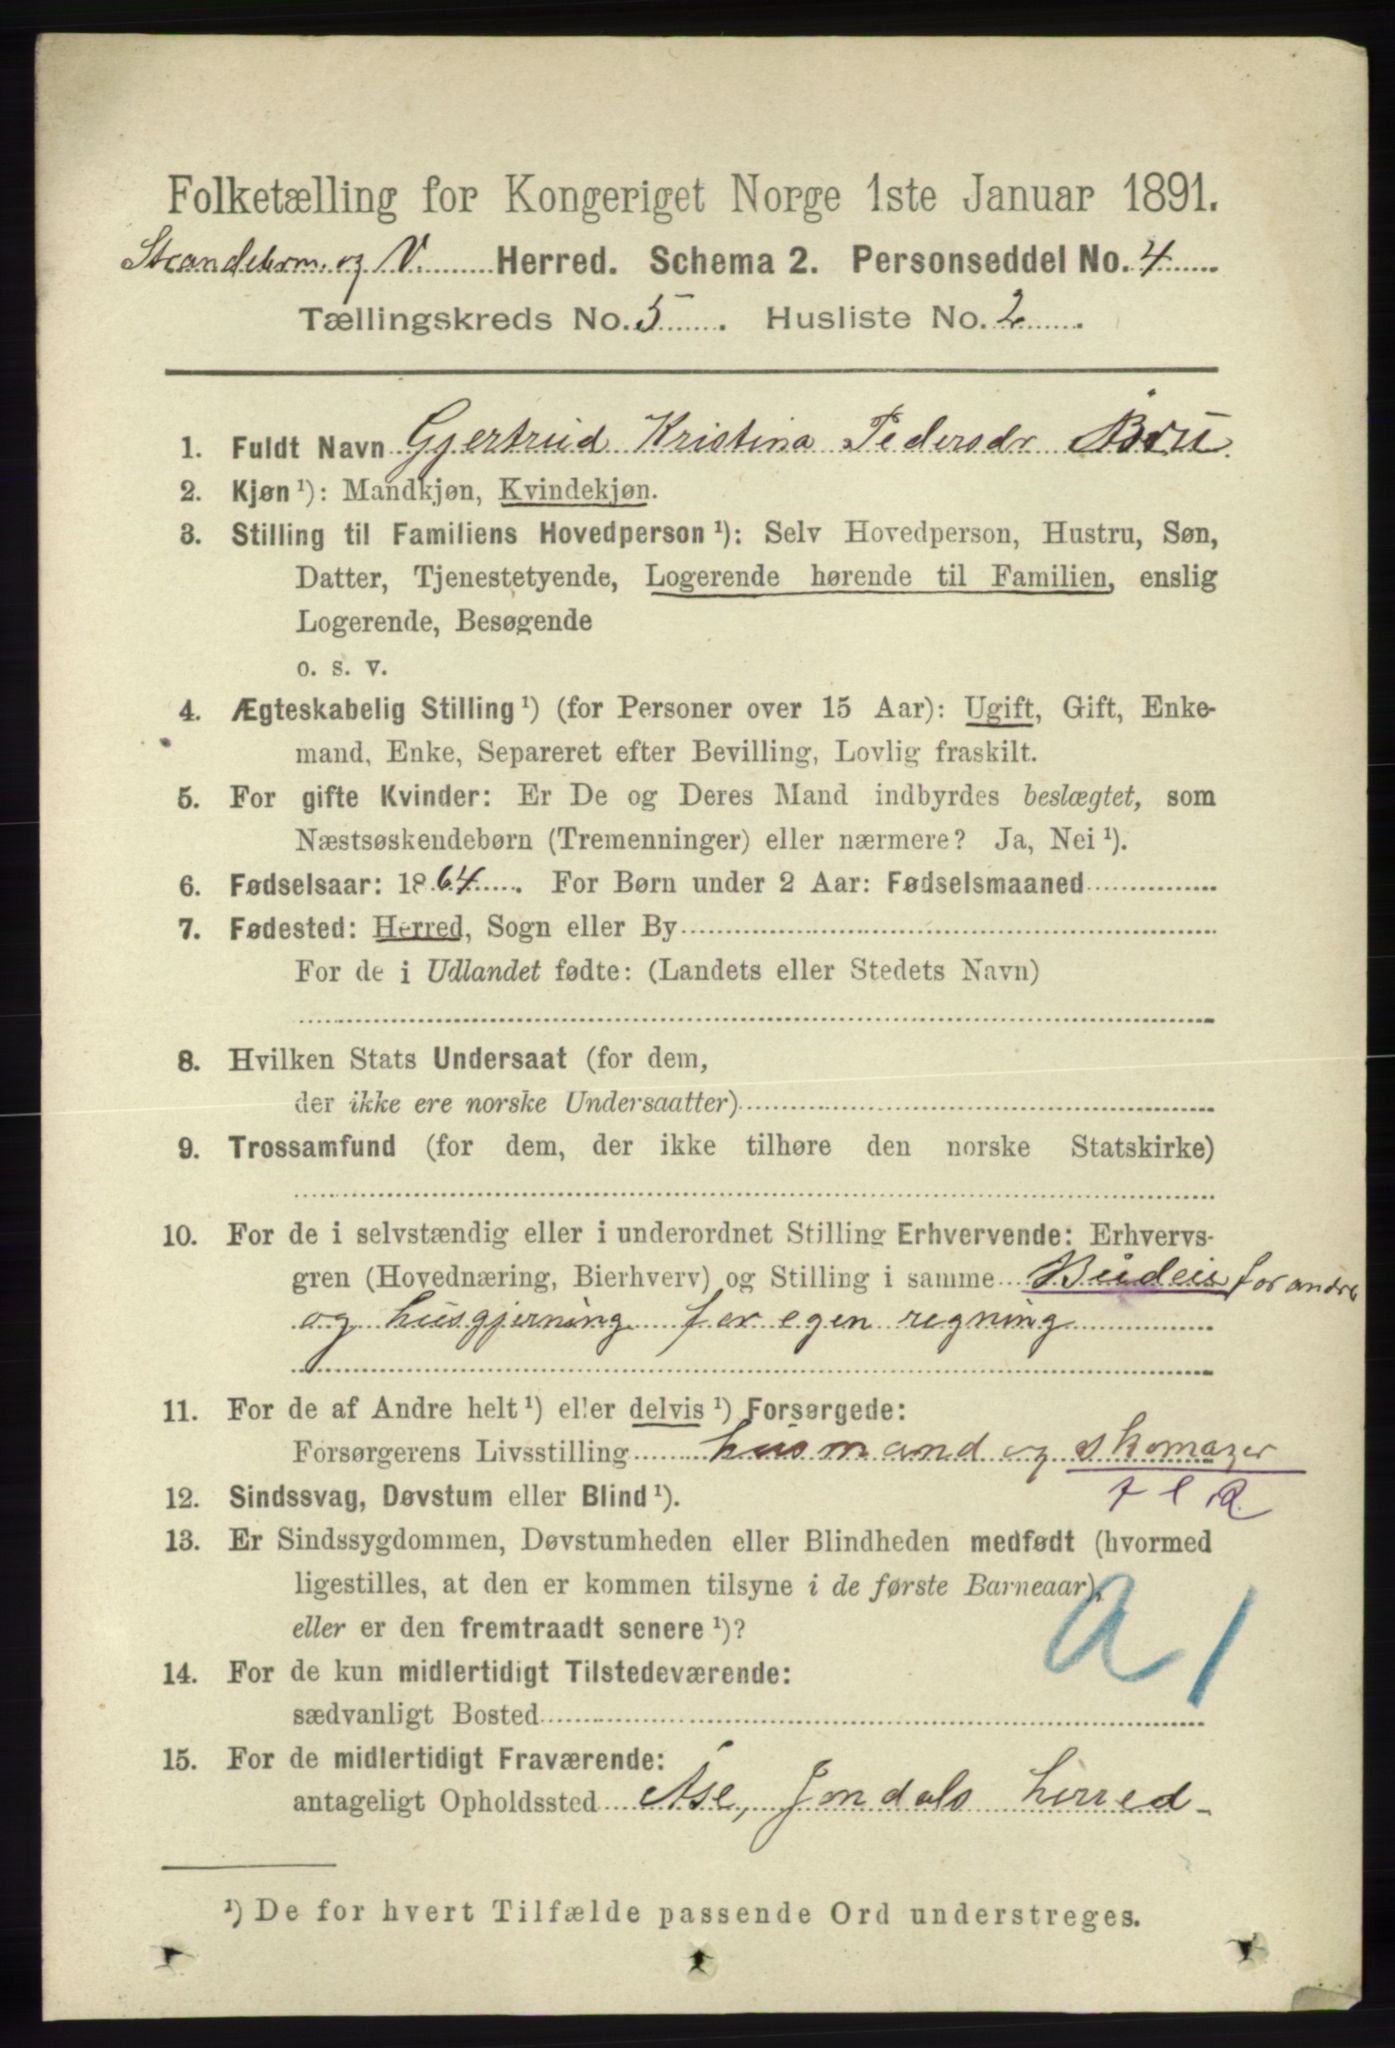 Folketælling for Kongeriget Norge 1ste Januar 1891.
Strandebarm og V. Herred. Schema 2. Personseddel No. 4
Tællingskreds No. 5. Husliste No. 2.
1. Fuldt Navn Gjertrud Kristina Pedersdr. Bru
2. Kjøn ¹): Mandkjøn, Kvindekjøn.
3. Stilling til Familiens Hovedperson ¹): Selv Hovedperson, Hustru, Søn,
Datter, Tjenestetyende, Logerende hørende til Familien, enslig
Logerende, Besøgende
o. s. v.
4. Ægteskabelig Stilling ¹) (for Personer over 15 Aar): Ugift, Gift, Enke-
mand, Enke, Separeret efter Bevilling, Lovlig fraskilt.
5. For gifte Kvinder: Er De og Deres Mand indbyrdes beslægtet, som
Næstsøskendebørn (Tremenninger) eller nærmere? Ja, Nei ¹).
6. Fødselsaar: 1864. For Børn under 2 Aar: Fødselsmaaned
7. Fødested: Herred, Sogn eller By
For de i Udlandet fødte: (Landets eller Stedets Navn)
8. Hvilken Stats Undersaat (for dem,
der ikke ere norske Undersaatter)
9. Trossamfund (for dem, der ikke tilhøre den norske Statskirke)
10. For de i selvstændig eller i underordnet Stilling Erhvervende: Erhvervs-
gren (Hovednæring, Bierhverv) og Stilling i samme Budeie for andre
og husgjerning for egen regning
11. For de af Andre helt ¹) eller delvis ¹) Forsørgede:
Forsørgerens Livsstilling husmand og skomager
12. Sindssvag, Døvstum eller Blind ¹).
13. Er Sindssygdommen, Døvstumheden eller Blindheden medfødt (hvormed
ligestilles, at den er kommen tilsyne i de første Barneaar),
eller er den fremtraadt senere ¹)?
a 1
14. For de kun midlertidigt Tilstedeværende:
sædvanligt Bosted
15. For de midlertidigt Fraværende:
antageligt Opholdssted Åse, Jondals herred
¹) De for hvert Tilfælde passende Ord understreges.